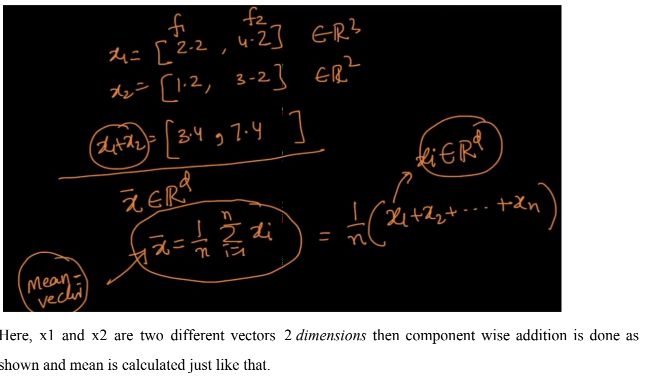 f1 f2
x1 = [2.2 , 4.2] ∈ R3
x2 = [1.2, 3.2] ∈ R2
x1+x2 = [3.4 , 7.4 ]
xi ∈ Rd
x̄ ∈ Rd
x̄ = 1/n Σ i=1 n xi = 1/n (x1+x2+ ... +xn)
Mean-
vector
Here, x1 and x2 are two different vectors 2 dimensions then component wise addition is done as
shown and mean is calculated just like that.